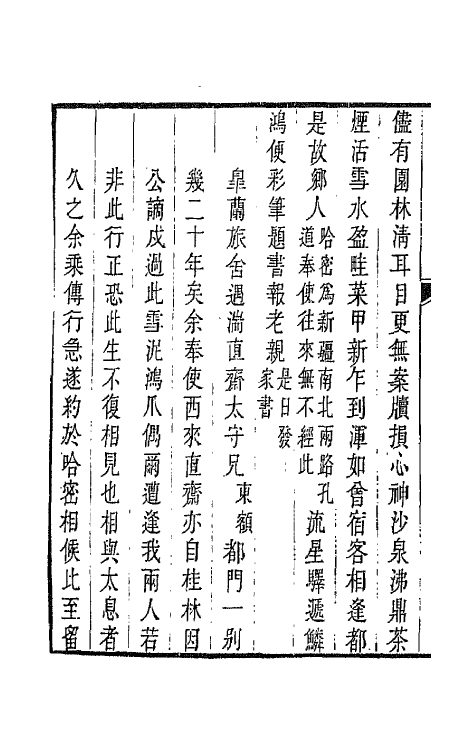 儘有園林淸耳目更無案牘損心神沙泉沸鼎茶
煙活雪水盈畦菜甲新乍到渾如曾宿客相逢都
是故鄉人哈密爲新疆南北兩路孔道奉使往來無不經此流星驛遞鱗
鴻便彩筆題書報老親是日發家書
臯蘭旅舍遇湍直齋太守兄東額都門一別
幾二十年矣余奉使西來直齋亦自桂林因
公謫戍過此雪泥鴻爪偶爾遭逢我兩人若
非此行正恐此生不復相見也相與太息者
久之余乘傳行急遂約於哈密相候此至留